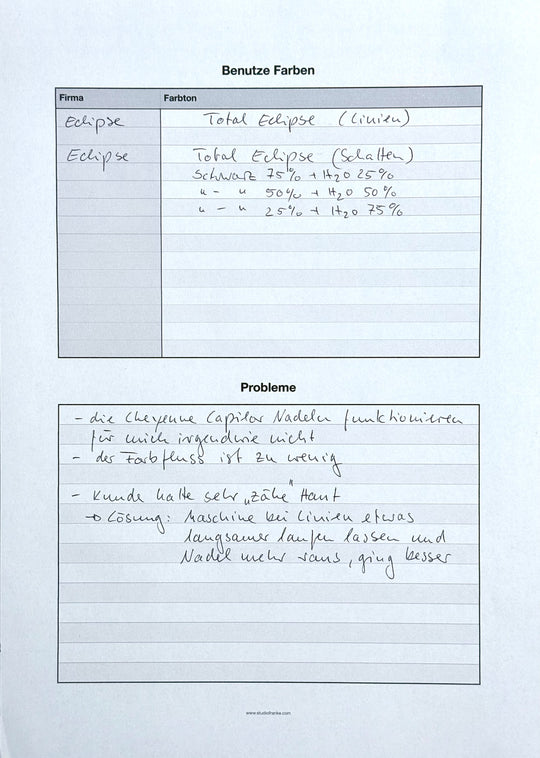 Benutze Farben
Firma Farbton
Eclipse Total Eclipse (Linien)
Eclipse Total Eclipse (Schatten)
Schwarz 75% + H2O 25%
" - " 50% + H2O 50%
" - " 25% + H2O 75%
Probleme
- die Cheyenne Capilar Nadeln funktionieren
für mich irgendwie nicht
- der Farbfluss ist zu wenig
- Kunde hatte sehr „zähe" Haut
→ Lösung: Maschine bei Linien etwas
langsamer laufen lassen und
Nadel mehr raus, ging besser
www.studiofranke.com